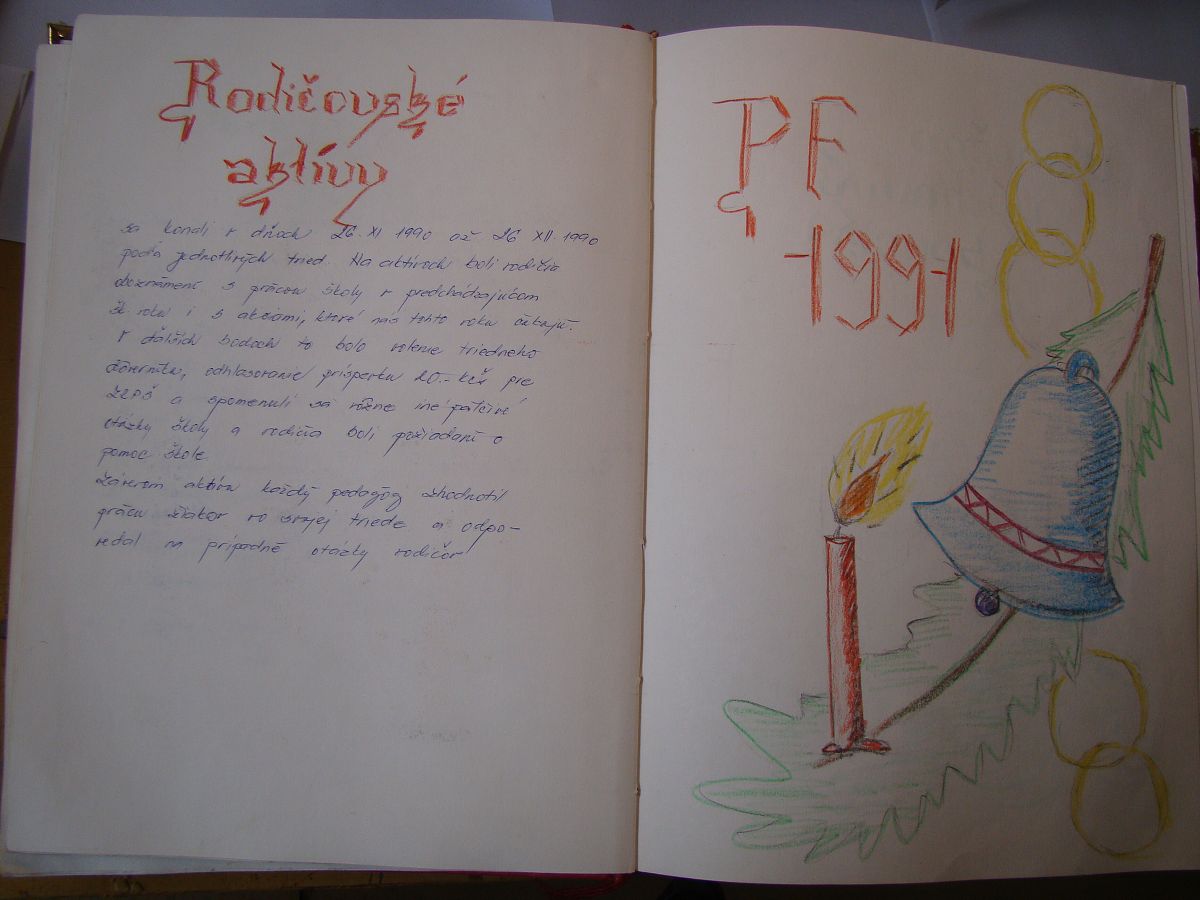 Rodičovské
aktívy
sa konali v dňoch 26. XI 1990 až 26 XII. 1990
podľa jednotlivých tried. Na aktívoch boli rodičia
oboznámení s prácou školy v predchádzajúcom
šk. roku i s akciami, ktoré nás tohto roku čakajú.
V ďalších bodoch to bolo volenie triedneho
dôverníka, odhlasovanie príspevku 20.- Kčs pre
ZRPŠ a spomenuli sa rôzne iné pálčivé
otázky školy a rodičia boli požiadaní o
pomoc škole.
Záverom aktívu každý pedagóg zhodnotil
prácu žiakov vo svojej triede a odpo-
vedal na prípadné otázky rodičov
PF
1991